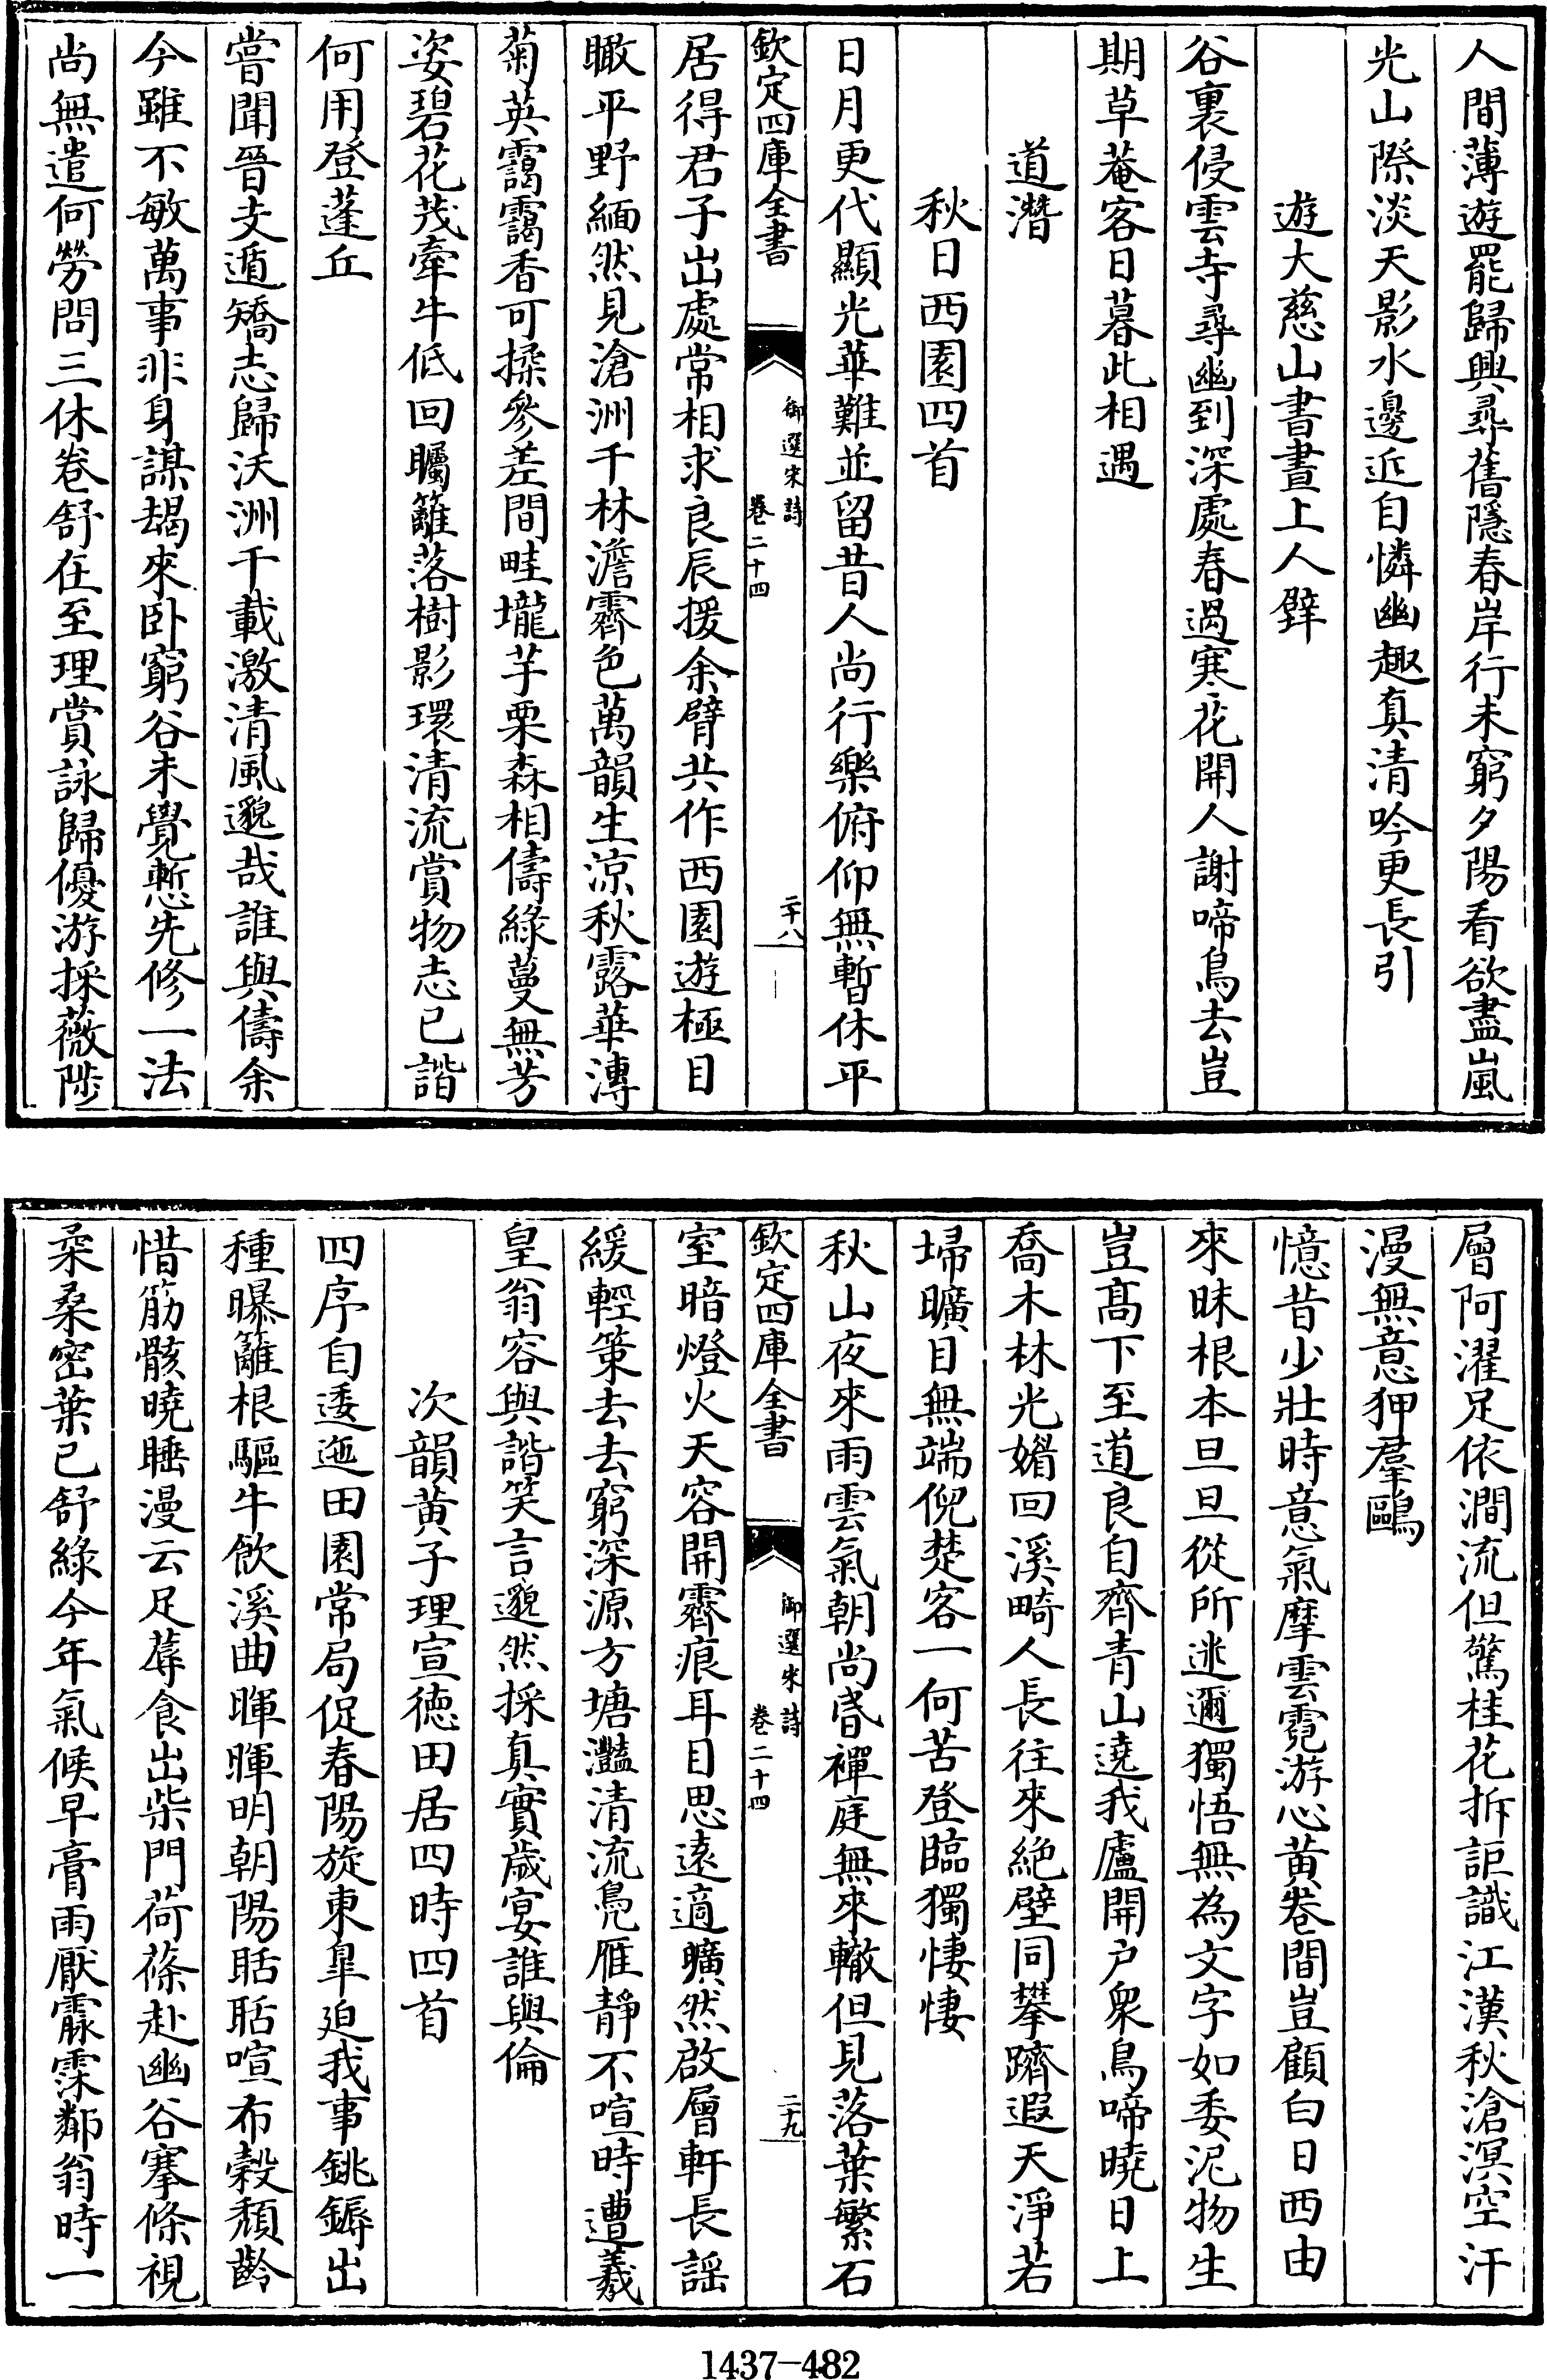 人間薄遊罷歸興尋舊隱春岸行未窮夕陽看欲盡嵐
光山際淡天影水邊近自憐幽趣真清吟更長引
遊大慈山書晝上人壁
谷裏侵雲寺尋幽到深處春過寒花開人謝啼鳥去豈
期草菴客日暮此相遇
道潛
秋日西園四首
日月更代顯光華難並留昔人尚行樂俯仰無暫休平
欽定四庫全書
御選宋詩
卷二十四
二十八
居得君子出處常相求良辰援余臂共作西園遊極目
瞰平野緬然見滄洲千林澹霽色萬韻生涼秋露華漙
菊英靄靄香可揉參差間畦壠芋栗森相儔綠蔓無芳
姿碧花茂牽牛低回矚籬落樹影環清流賞物志已諧
何用登蓬丘
嘗聞晉支遁矯志歸沃洲千載激清風邈哉誰與儔余
今雖不敏萬事非身謀朅來卧窮谷未覺慙先修一法
尚無遣何勞問三休卷舒在至理賞詠歸優游採薇陟
層阿濯足依澗流但驚桂花拆詎識江漢秋滄溟空汗
漫無意狎羣鷗
憶昔少壯時意氣摩雲霓游心黃卷間豈顧白日西由
來昧根本旦旦從所迷邇獨悟無為文字如委泥物生
豈高下至道良自齊青山遶我廬開户衆鳥啼曉日上
喬木林光媚回溪畸人長往來絕壁同攀躋遐天淨若
埽曠目無端倪楚客一何苦登臨獨悽悽
秋山夜來雨雲氣朝尚昏襌庭無來轍但見落葉繁石
欽定四庫全書
御選宋詩
卷二十四
二十九
室暗燈火天容開霽痕耳目思遠適曠然啟層軒長謡
緩輕策去去窮深源方塘灩清流鳧雁靜不喧時遭羲
皇翁容與諧笑言邈然採真實歲宴誰與倫
次韻黄子理宣徳田居四時四首
四序自逶迤田園常局促春陽旋東臯迫我事銚鎒出
種曝籬根驅牛飲溪曲暉暉明朝陽聒聒喧布穀頹齡
惜筋骸曉睡漫云足蓐食出柴門荷蓧赴幽谷搴條視
柔桑密葉已舒綠今年氣候早膏雨厭霢霂鄰翁時一
1437-482